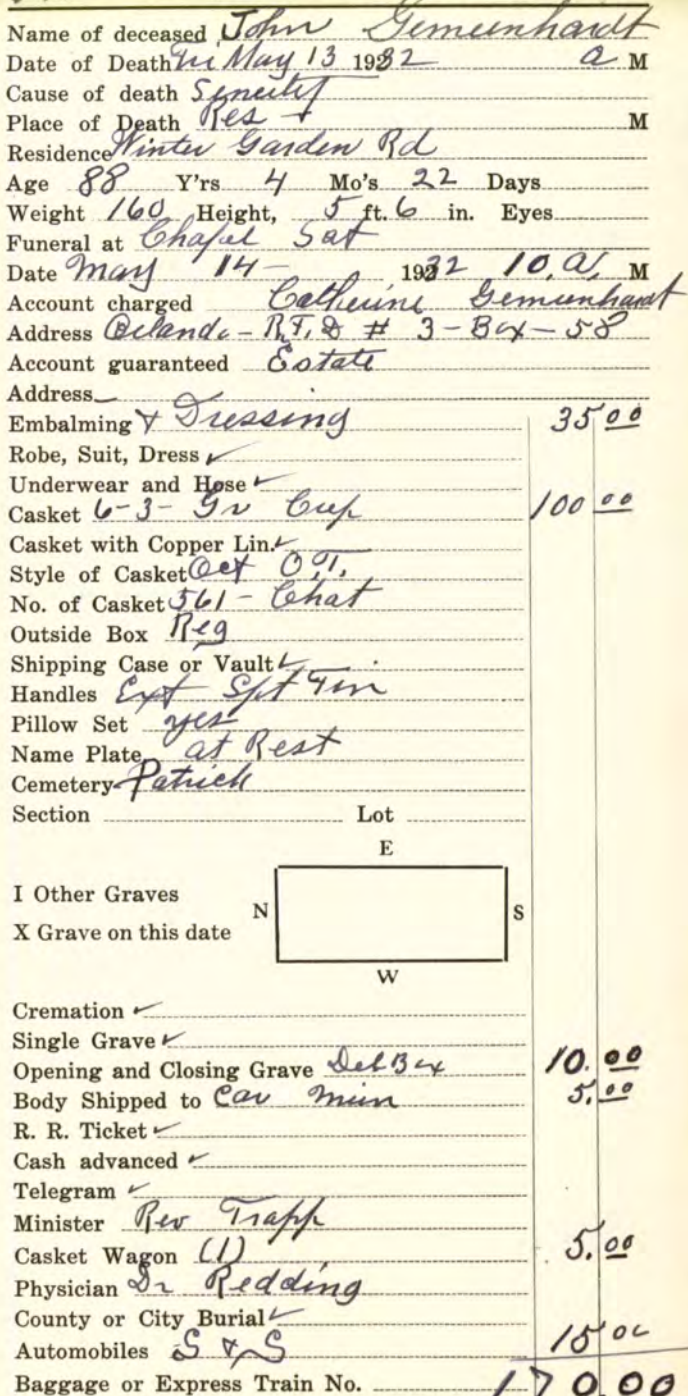 Name of deceased John Gemeenhardt
Date of Death Fri May 13 1932 a M
Cause of death Senility
Place of Death Res M
Residence Winter Garden Rd
Age 88 Y'rs 4 Mo's 22 Days
Weight 160 Height, 5 ft. 6 in. Eyes
Funeral at Chapel Sat
Date May 14 - 1932 10, a, M
Account charged Catherine Gemeenhardt
Address Orlando - R.F.D # 3 - Box - 58
Account guaranteed Estate
Address
Embalming & Dressing 35 00
Robe, Suit, Dress ✓
Underwear and Hose ✓
Casket 6-3- Gr Crep 100 00
Casket with Copper Lin. ✓
Style of Casket Oct O.T.
No. of Casket 561 - Chat
Outside Box Reg
Shipping Case or Vault ✓
Handles Ext
Pillow Set yes
Name Plate at Rest
Cemetery Patrick
Section Lot
E
I Other Graves
N S
X Grave on this date
W
Cremation ✓
Single Grave ✓
Opening and Closing Grave Del Box 10. 00
Body Shipped to Car Min 5. 00
R. R. Ticket ✓
Cash advanced ✓
Telegram ✓
Minister Rev Trapp
Casket Wagon (1) 5. 00
Physician Dr Redding
County or City Burial ✓
Automobiles S & S 15 00
Baggage or Express Train No. 170 00